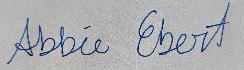 Abbie Ebert